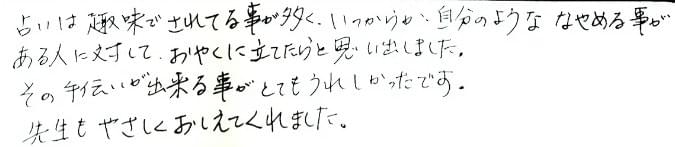 占いは趣味でされてる事が多く、いつからか、自分のような なやめる事が
ある人に対して、おやくに立てたらと思い出しました。
その手伝いが出来る事がとてもうれしかったです。
先生も やさしく おしえてくれました。